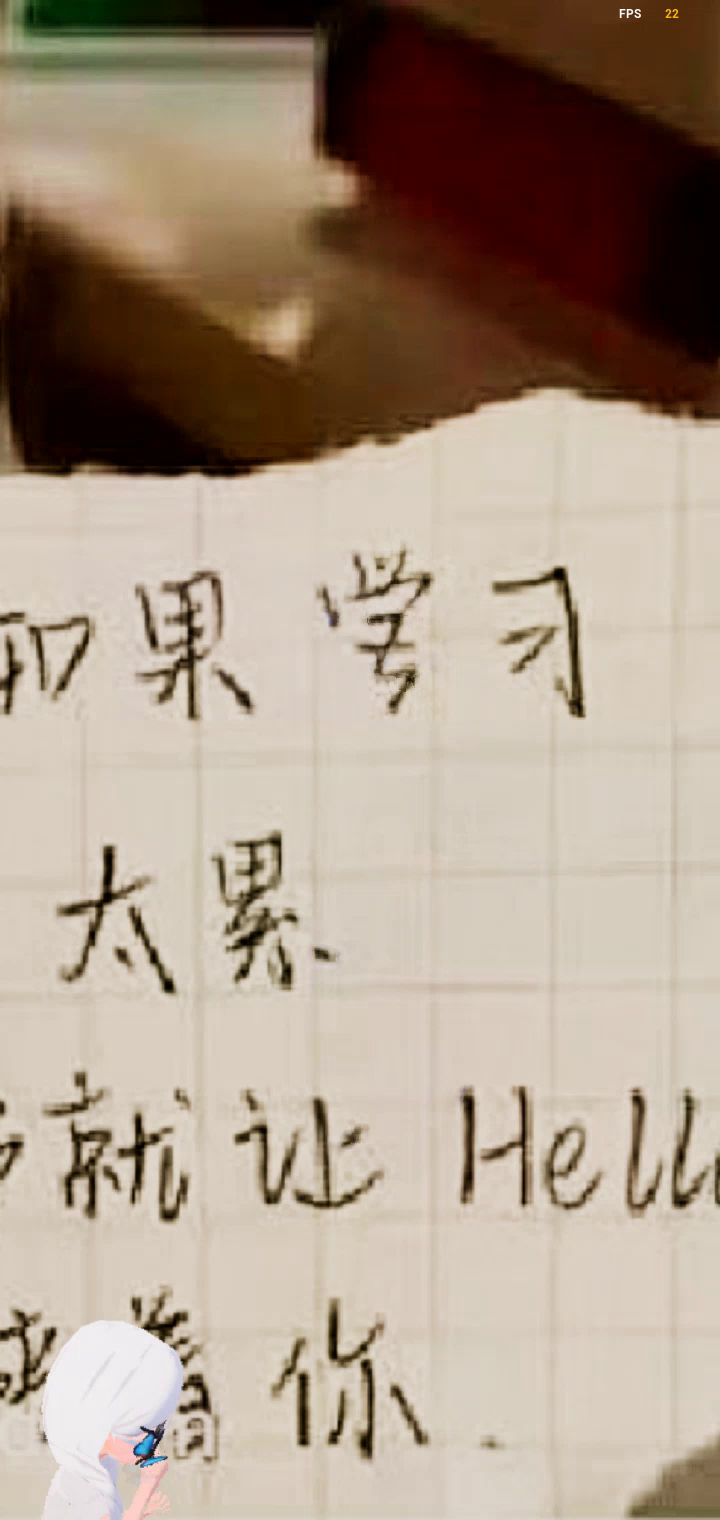 FPS 22
如果学习
太累
就让 Hell
着你.